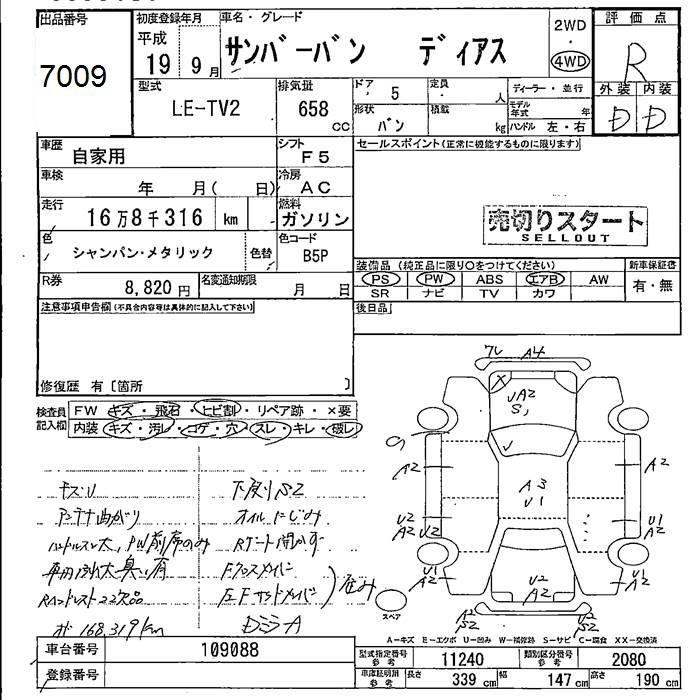 出品番号 初度登録年月 車名・グレード 2WD 評価点
7009 平成 19 9月 サンバーバン ディアス ・ 4WD R
型式 排気量 ドア 5 定員 人 ディーラー・並行 外装 内装
LE-TV2 658 cc 形状 バン 積載 kg モデル年式 年 ハンドル 左・右 D D
車歴 自家用 シフト F5 セールスポイント(正常に機能するものに限ります)
車検 年 月( 日) 冷房 AC
走行 16万8千316 km 燃料 ガソリン 売切りスタート
SELLOUT
色 シャンパン・メタリック 色替 色コード B5P 装備品(純正品に限り○をつけてください) 新車保証書
R券 8,820円 名変通知期限 月 日 PS PW ABS エアB AW 有・無
SR ナビ TV カワ
注意事項申告欄(不具合内容等は具体的に記入して下さい) 後日品
修復歴 有〔箇所 〕
検査員 FW キズ・飛石・ヒビ割・リペア跡・×要
記入欄 内装 キズ・汚レ・コゲ・穴・スレ・キレ・破レ
ワレ A4
UA2
S1
A2 A3 A2
U1
U2 U1
A2 U2 A2
U1 U2 U1
A2 A2 A2
A2 A2
S2 S2
スペア
キズU 下廻りS2
アンテナ曲がり オイルにじみ
PW前席のみ Rゲート開かず
Fクロスメンバ
左Fサイドメンバー 凹み
168,319km DミラーA
A−キズ E−エクボ U−凹み W−補修跡 S−サビ C−腐食 XX−交換済
車台番号 109088 型式指定番号 参考 11240 類別区分番号 参考 2080
登録番号 車庫証明用 参考 長さ 339cm 幅 147cm 高さ 190cm